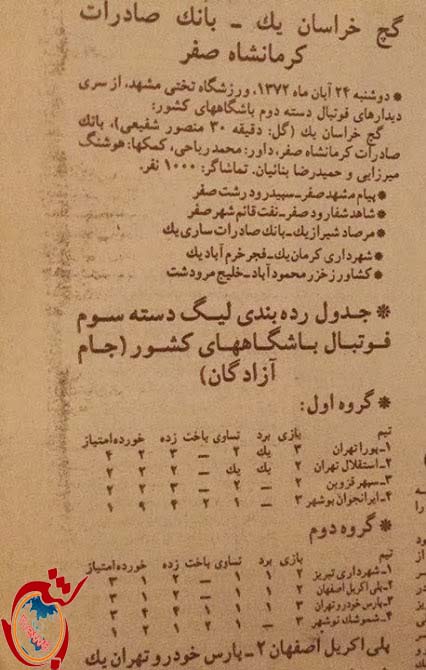 گچ خراسان یك ـ بانك صادرات
کرمانشاه صفر
* دوشنبه ۲۴ آبان ماه ۱۳۷۲، ورزشگاه تختی مشهد، از سری
دیدارهای فوتبال دسته دوم باشگاههای کشور:
گچ خراسان یك (گل: دقیقه ۳۰ منصور شفیعی)، بانك
صادرات کرمانشاه صفر، داور: محمد ریاحی، کمکها: هوشنگ
میرزایی و حمیدرضا بنائیان. تماشاگر: ۱۰۰۰ نفر.
* پیام مشهد صفر ـ سپیدرود رشت صفر
* شاهد شفارود صفر ـ نفت قائم شهر صفر
* مرصاد شیراز یك ـ بانك صادرات ساری یك
* شهرداری کرمان یك ـ فجر خرم آباد یك
* کشاورز خزر محمودآباد ـ خلیج مرودشت
* جدول رده بندی لیگ دسته سوم
فوتبال باشگاههای کشور (جام
آزادگان)
* گروه اول:
تیم بازی برد تساوی باخت زده خورده امتیاز
۱ـ پورا تهران ۳ یك ۲ ـ ۳ ۲ ۴
۲ـ استقلال تهران ۲ یك یك ـ ۲ ۲
۳ـ سپهر قزوین ۲ ـ ۲ ـ ۳ ۲ ۲
۴ـ ایرانجوان بوشهر ۳ ـ ۱ ۲ ۴ ۹ ۱
* گروه دوم
تیم بازی برد تساوی باخت زده خورده امتیاز
۱ـ شهرداری تبریز ۲ ۱ ۱ ـ ۲ ۱ ۳
۲ـ پلی اکریل اصفهان ۲ ۱ ۱ ـ ۲ ۱ ۳
۳ـ پارس خودرو تهران ۳ ۱ ۱ ۱ ۴ ۴ ۳
۴ـ شموشك نوشهر ۳ ـ ۱ ۲ ۱ ۲ ۱
پلی اکریل اصفهان ۲ ـ پارس خودرو تهران یك